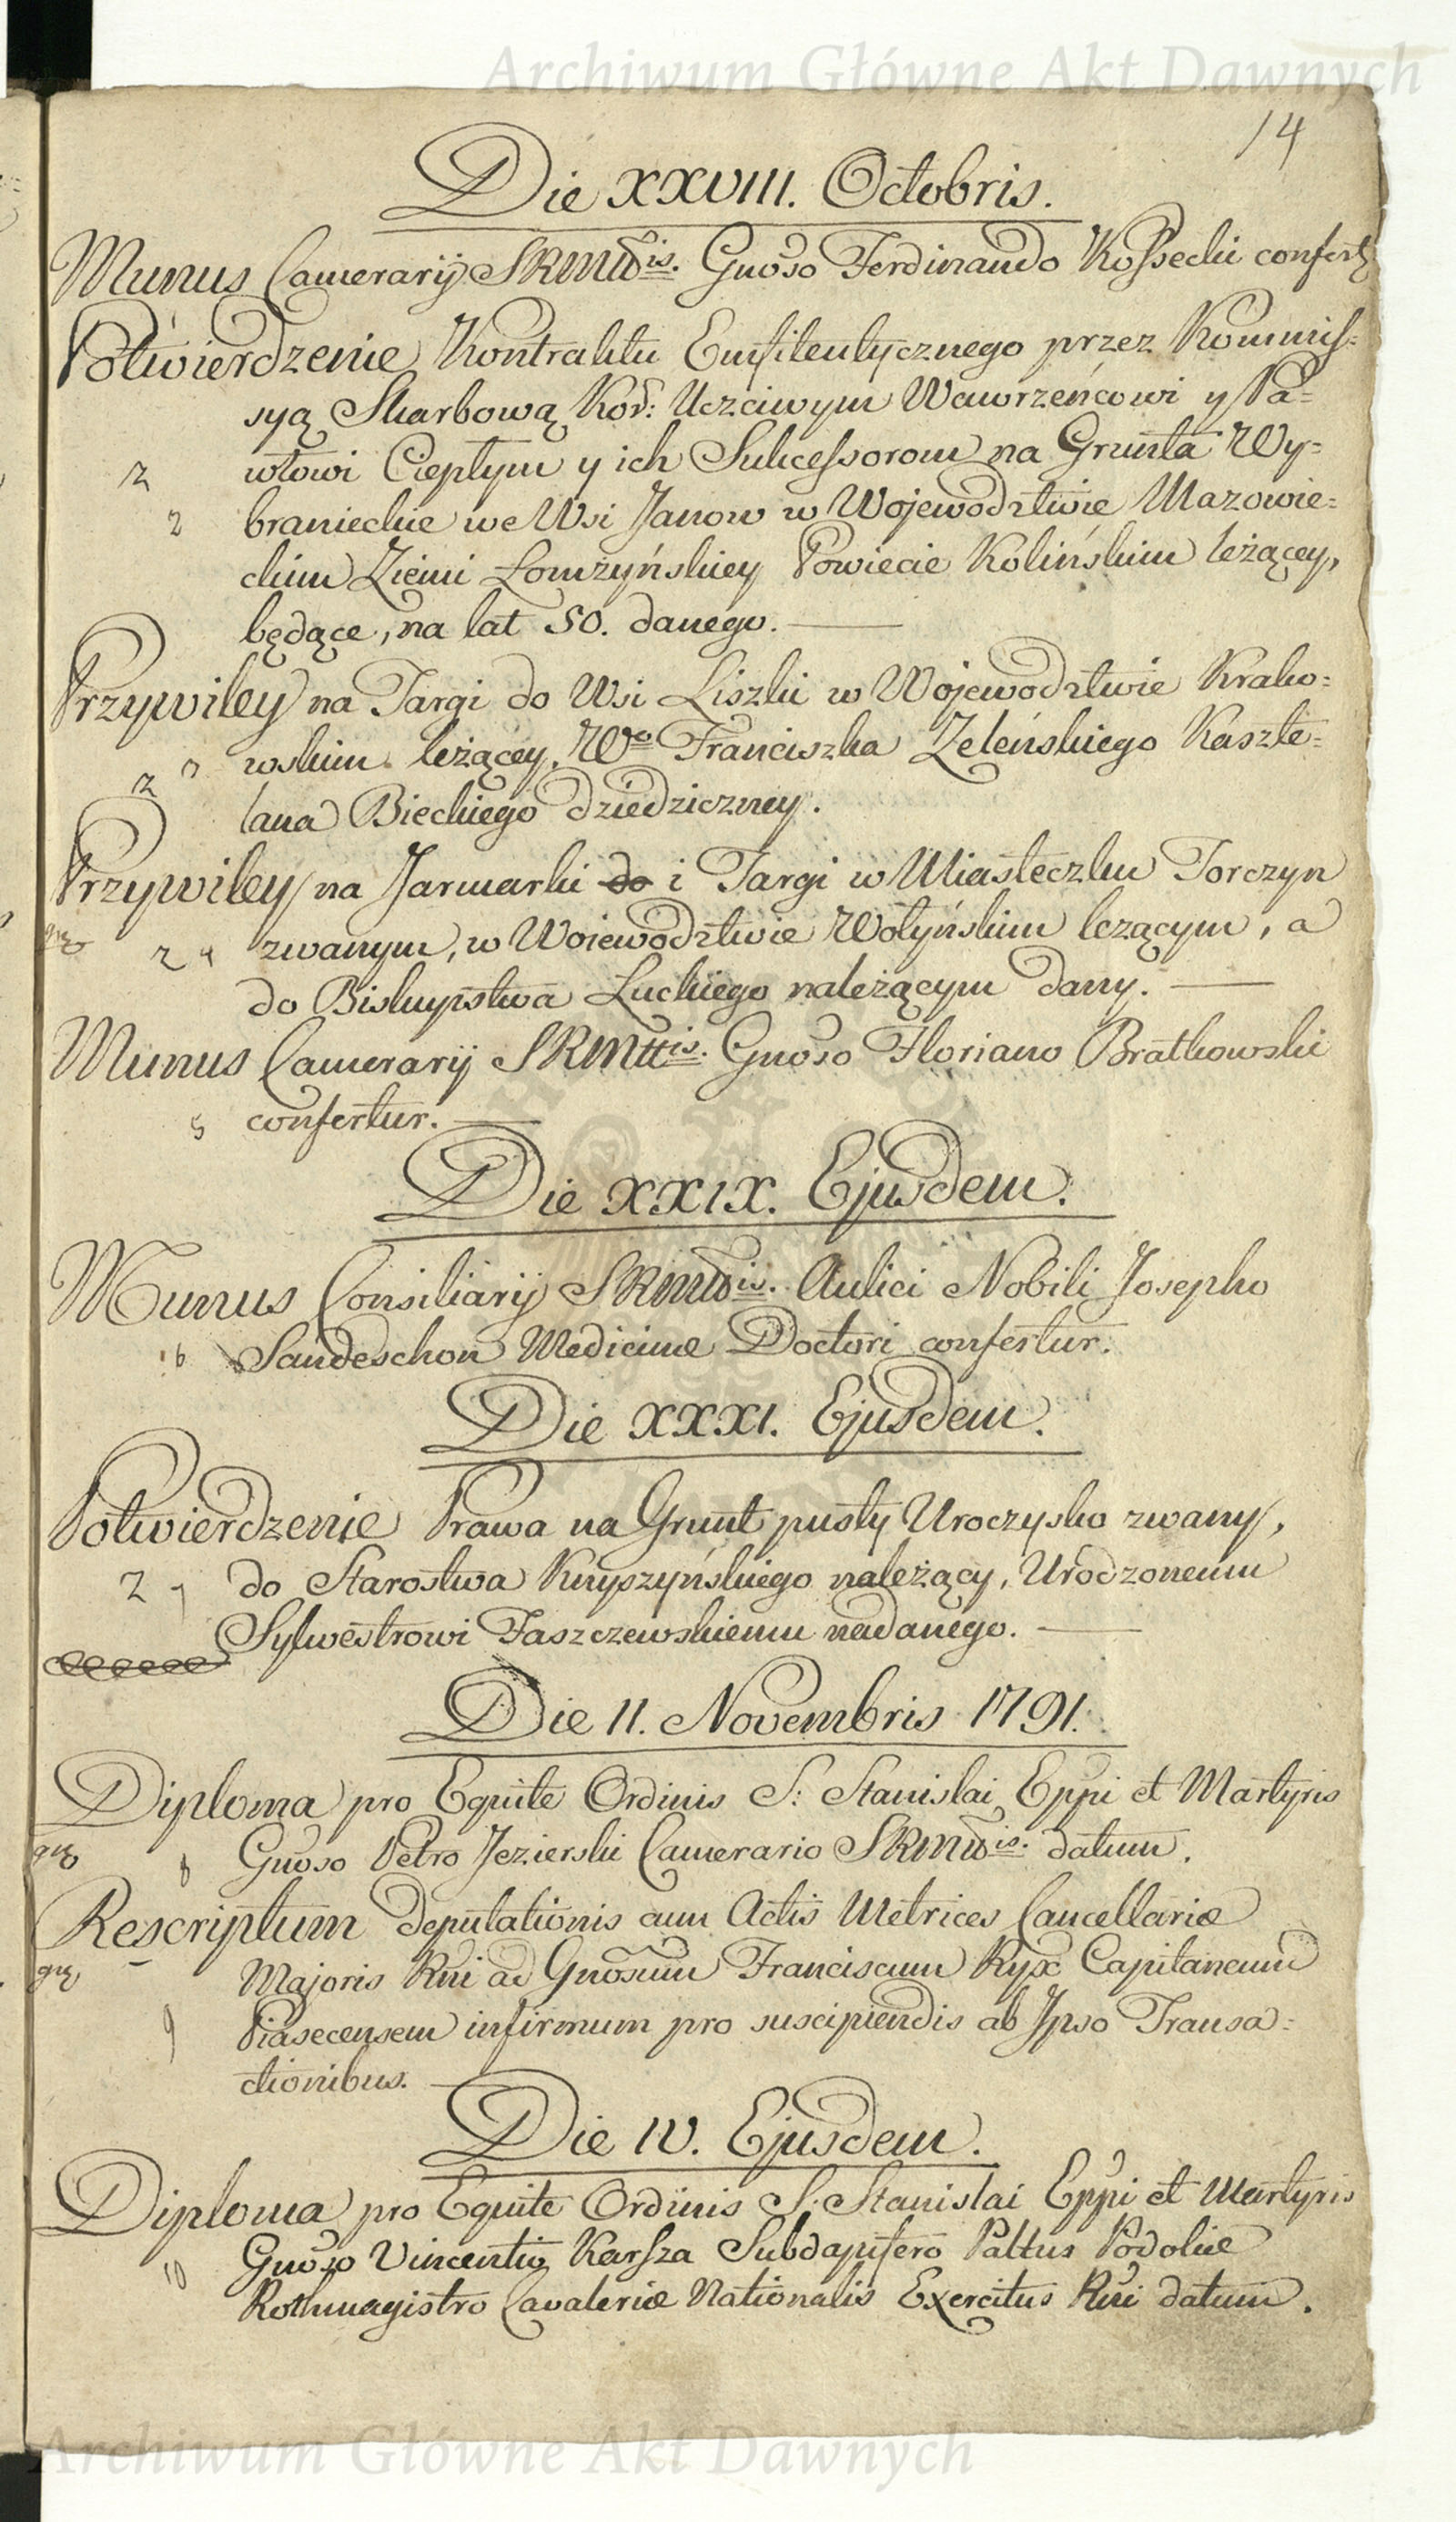 Archiwum Główne Akt Dawnych
14
Die XXVIII. Octobris.
Munus Camerarij SRMttis. Gnoso Ferdinando Kossecki confert
Potwierdzenie Kontraktu Emfiteutycznego przez Kommis-
syą Skarbową Kor: Uczciwym Wawrzeńcowi y Pa=
2 włowi Ciepłym y ich Sukcessorom na Grunta Wy=
2 branieckie we Wsi Janow w Wojewodztwie Mazowie=
ckim Ziemi Łomzyńskiey Powiecie Kolińskim leżącey,
będące, na lat 50. danego.
Przywiley na Targi do Wsi Liszki w Wojewodztwie Krako=
2 3 wskim leżącey, Wgo Franciszka Zeleńskiego Kaszte=
lana Bieckiego dziedziczney.
Przywiley na Jarmarki do i Targi w Miasteczku Torczyn
2 4 zwanym, w Woiewodztwie Wołyńskim leżącym, a
do Biskupstwa Łuckiego należącym dany.
Munus Camerarij SRMttis. Gnoso Floriano Bratkowski
5 confertur.
Die XXIX. Ejusdem.
Munus Consiliarij SRMttis. Aulici Nobili Josepho
6 Sandeschon Medicinæ Doctori confertur.
Die XXXI. Ejusdem.
Potwierdzenie Prawa na Grunt pusty Uroczysko zwany,
2 7 do Starostwa Knyszyńskiego należący, Urodzonemu
Sylwestrowi Faszczewskiemu nadanego.
Die 11. Novembris 1791.
Diploma pro Equite Ordinis S: Stanislai Eppi et Martyris
8 Gnoso Petro Jezierski Camerario SRMttis. datum.
Rescriptum deputationis cum Actis Metrices Cancellariæ
Majoris Rni ad Gnosum Franciscum Ryx Capitaneum
9 Piasecensem infirmum pro suscipiendis ab Ipso Transa=
ctionibus.
Die IV. Ejusdem.
Diploma pro Equite Ordinis S: Stanislai Eppi et Martyris
10 Gnoso Vincentio Karsza Subdapifero Paltus Podoliæ
Rothmagistro Cavaleriæ Nationalis Exercitus Rni datum.
Archiwum Główne Akt Dawnych